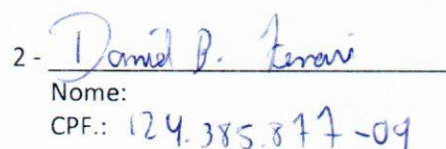 2 - Daniel B. Ferrari
Nome:
CPF.: 124.385.877-09